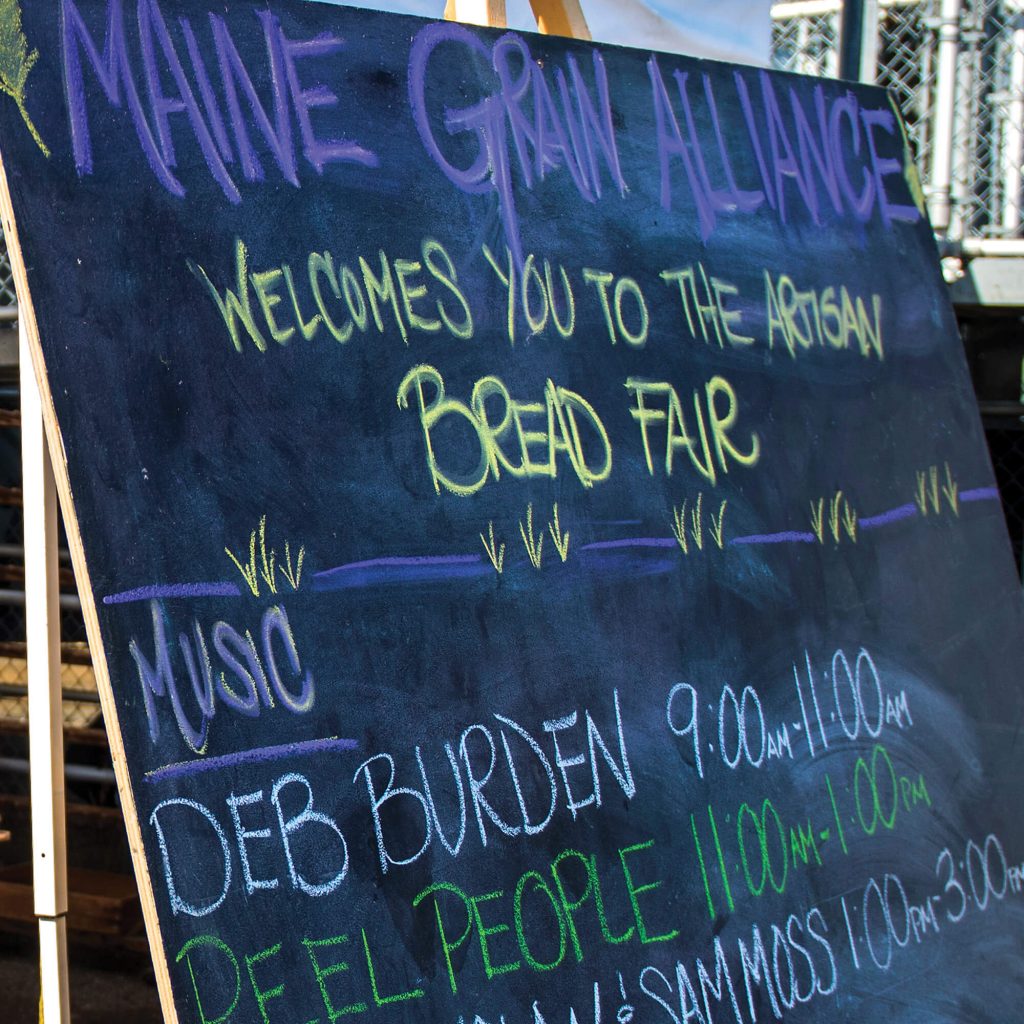 MAINE GRAIN ALLIANCE
WELCOMES YOU TO THE ARTISAN
BREAD FAIR
MUSIC
DEB BURDEN 9:00AM-11:00AM
PEEL PEOPLE 11:00AM-1:00PM
& SAM MOSS 1:00PM-3:00PM